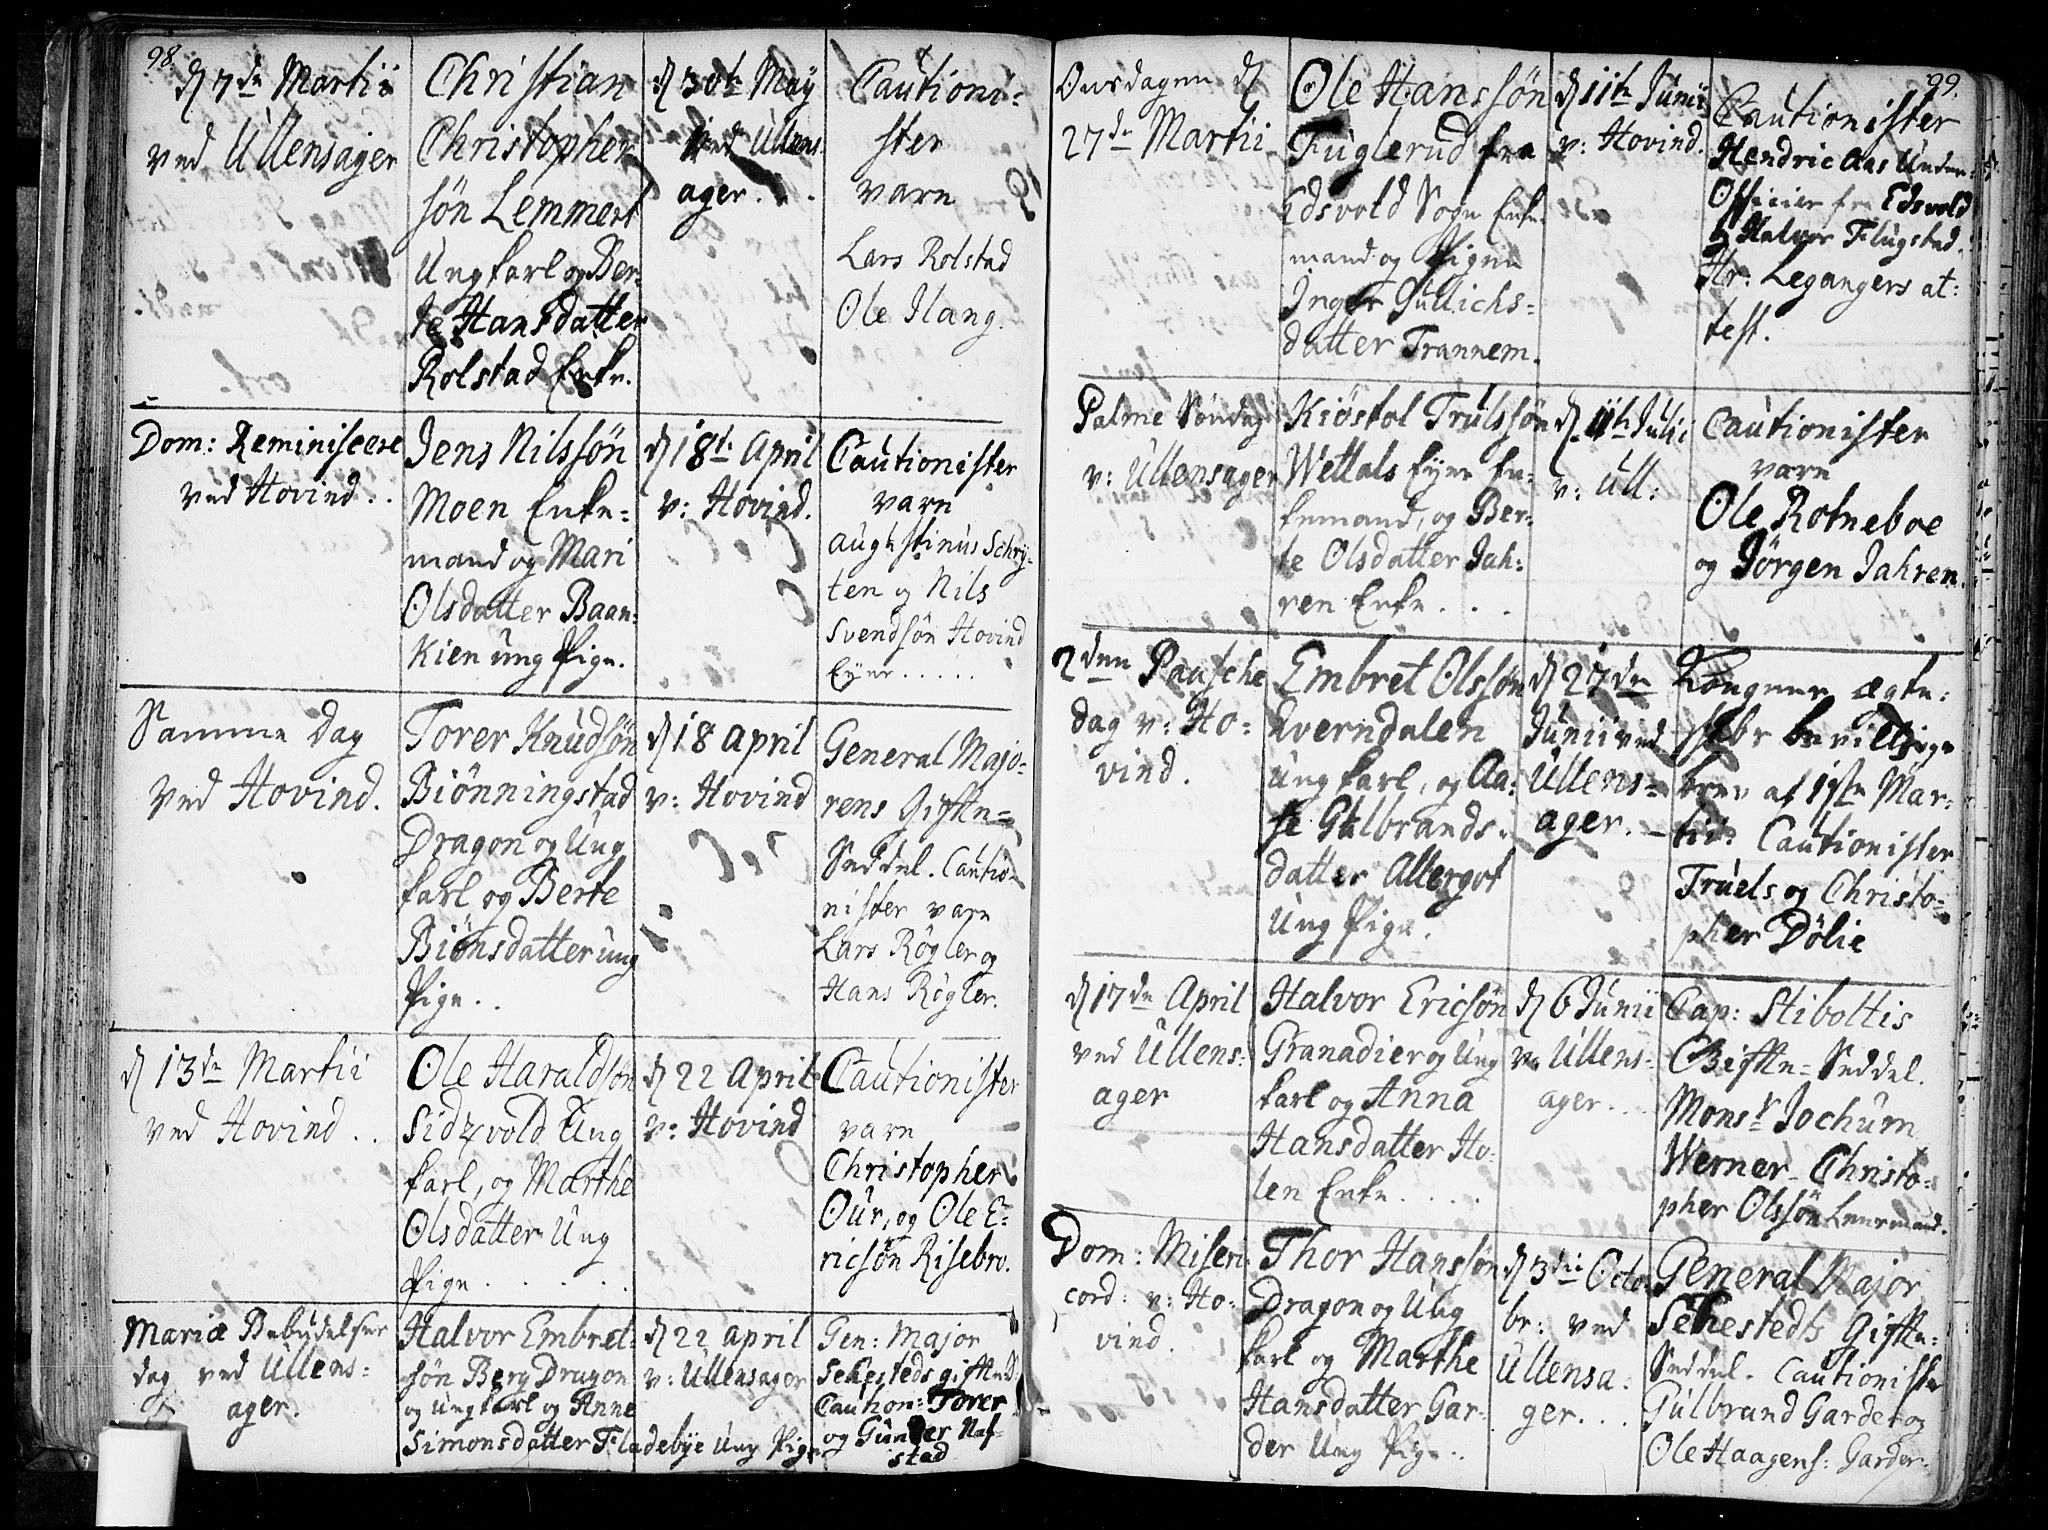 98.
d 7de Martii
ved Ullensager
Christian
Christopher
søn Lemmert
Ungkarl og Ber-
te Hansdatter
Rolstad Enke.
d 30te May
ved Ullens
ager. . .
Cautioni-
ster
varn
Lars Rolstad
Ole Ilang.
Dom: Reminiscere
ved Hovind . .
Jens Nilssøn
Moen Enke-
mand og Mari
Olsdatter Baan-
kien ung Pige.
d 18de April
v: Hovind.
Cautionister
varn
Augustinus Schry-
ten og Nils
Svendsøn Hovind
Eyer . . . . .
Samme Dag
ved Hovind.
Torer Knudsøn
Biønningstad
Dragon og Ung
karl og Berte
Biønsdatter ung
Pige . .
d 18 April
v: Hovind
General Majo-
rens Gifte-
Seddel. Cautio-
nister varn
Lars Røgler og
Hans Røgler.
d 13de Martii
ved Hovind . .
Ole Haraldsøn
Sidzvold Ung
karl, og Marthe
Olsdatter Ung
Pige . . . . .
d 22 April
v: Hovind
Cautionister
varn
Christopher
Our, og Ole E-
ricsøn Risebro.
Mariæ Bebudelses
dag ved Ullens-
ager.
Halvor Embret-
søn Berg Dragon
og ungkarl og Anne
Simonsdatter Fladebye Ung Pige
d 22 April
v: Ullensager
Gen: Major
Sehesteds gifte S
Caution: Torer
og Gunder Naf-
stad
99.
Onsdagen d
27de Martii
Ole Hanssøn
Fuglerud fra
Edsvold Sogn Enke-
mand og Pigen
Inger Gullichs-
datter Trannem.
d 11te Junii
v: Hovind.
Cautionister
Hendric Aas Under-
Officier fra Edsvold
og Halvor Flugstad.
Hr. Legangers at-
test.
Palme Søndag
v: Ullensager
Kiøstol Trulssøn
Wettals Eyer En-
kemand, og Ber-
te Olsdatter Jah-
ren Enke . . .
d 11te Julii
v: Ull:
Cautionister
varn
Ole Rotneboe
og Jørgen Jahren.
2den Paasche
dag v: Ho-
vind.
Embret Olssøn
Kverndalen
ung karl, og Aa-
se Gulbrands-
datter Allergot
Ung Pige.
d 27de
Junii ved
Ullens-
ager. —
Kongens ægte-
skbs bevillgs
brev af 19te Mar-
tii. Cautionister
Truels og Christo-
pher Dølie
d 17de April
ved Ullens-
ager
Halvor Ericsøn
Granadier og Ung
karl og Anna
Hansdatter Ho-
len Enke . . . .
d 6 Junii
v: Ullens-
ager . . .
Cap: Stiboltis
Gifte-Seddel.
Monsr Jochum
Werner Christo-
pher Olssøn Leuremand.
Dom: Miseri
cord: v: Ho-
vind.
Thor Hanssøn
Dragon og Ung
karl og Marthe
Hansdatter Gar-
der Ung Pige . .
d 3die Octo
br: ved
Ullensa-
ger . . .
General Major
Sehestedts Gifte-
Seddel. Cautionister
Gulbrand Garder og
Ole Haagens: Garder.